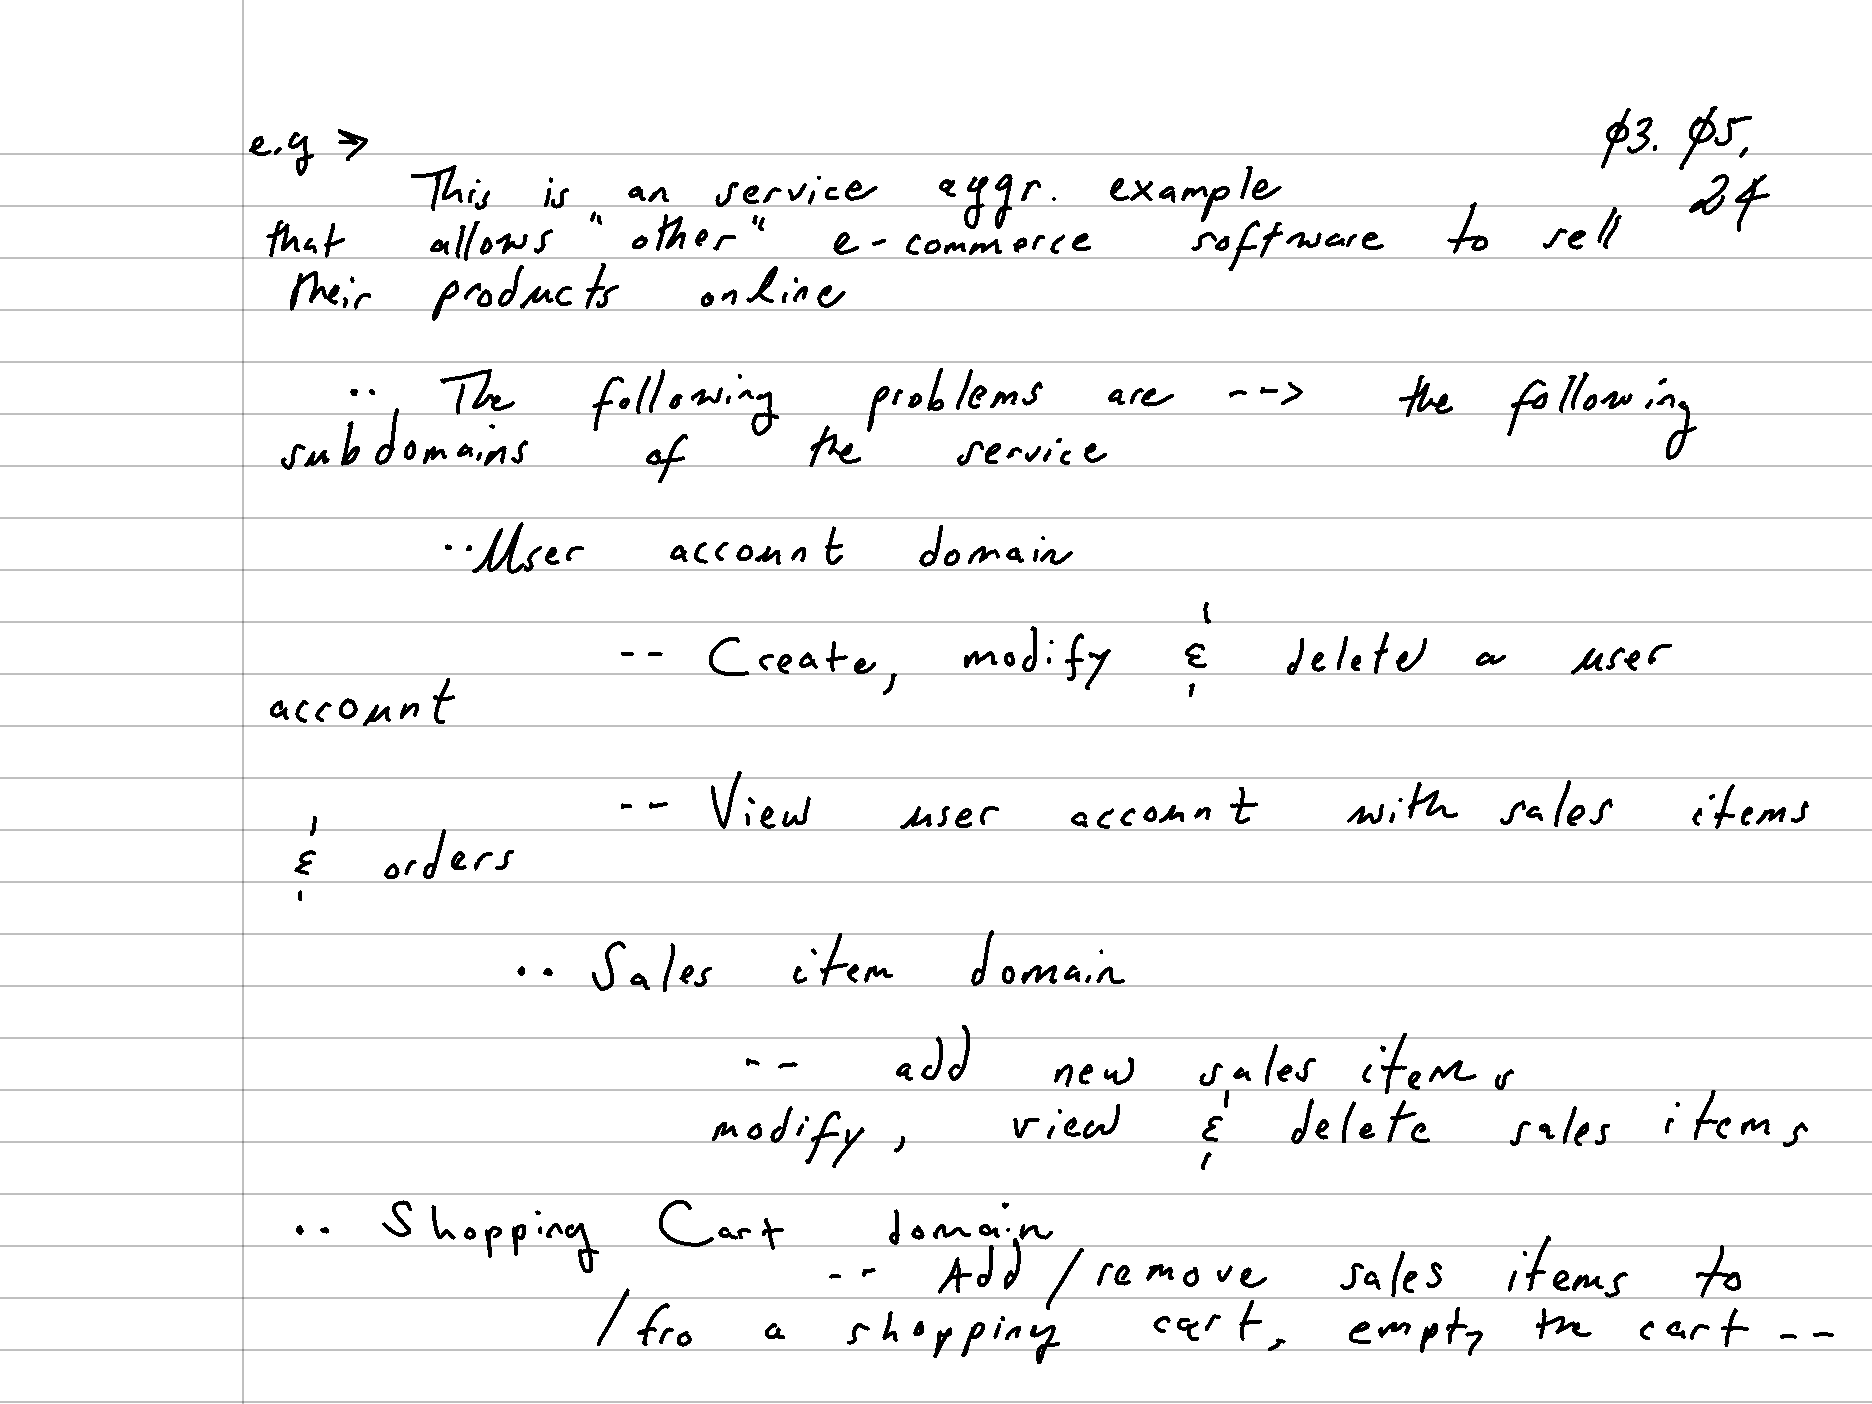 e.g ⇒
ø3. ø5,
24
This is an service aggr. example
that allows "other" e-commerce software to sell
their products online
.. The following problems are --> the following
subdomains of the service
..User account domain
-- Create, modify & delete a user
account
-- View user account with sales items
& orders
.. Sales item domain
-- add new sales items
modify, view & delete sales items
.. Shopping Cart domain
-- Add/remove sales items to
/fro a shopping cart, empty the cart --